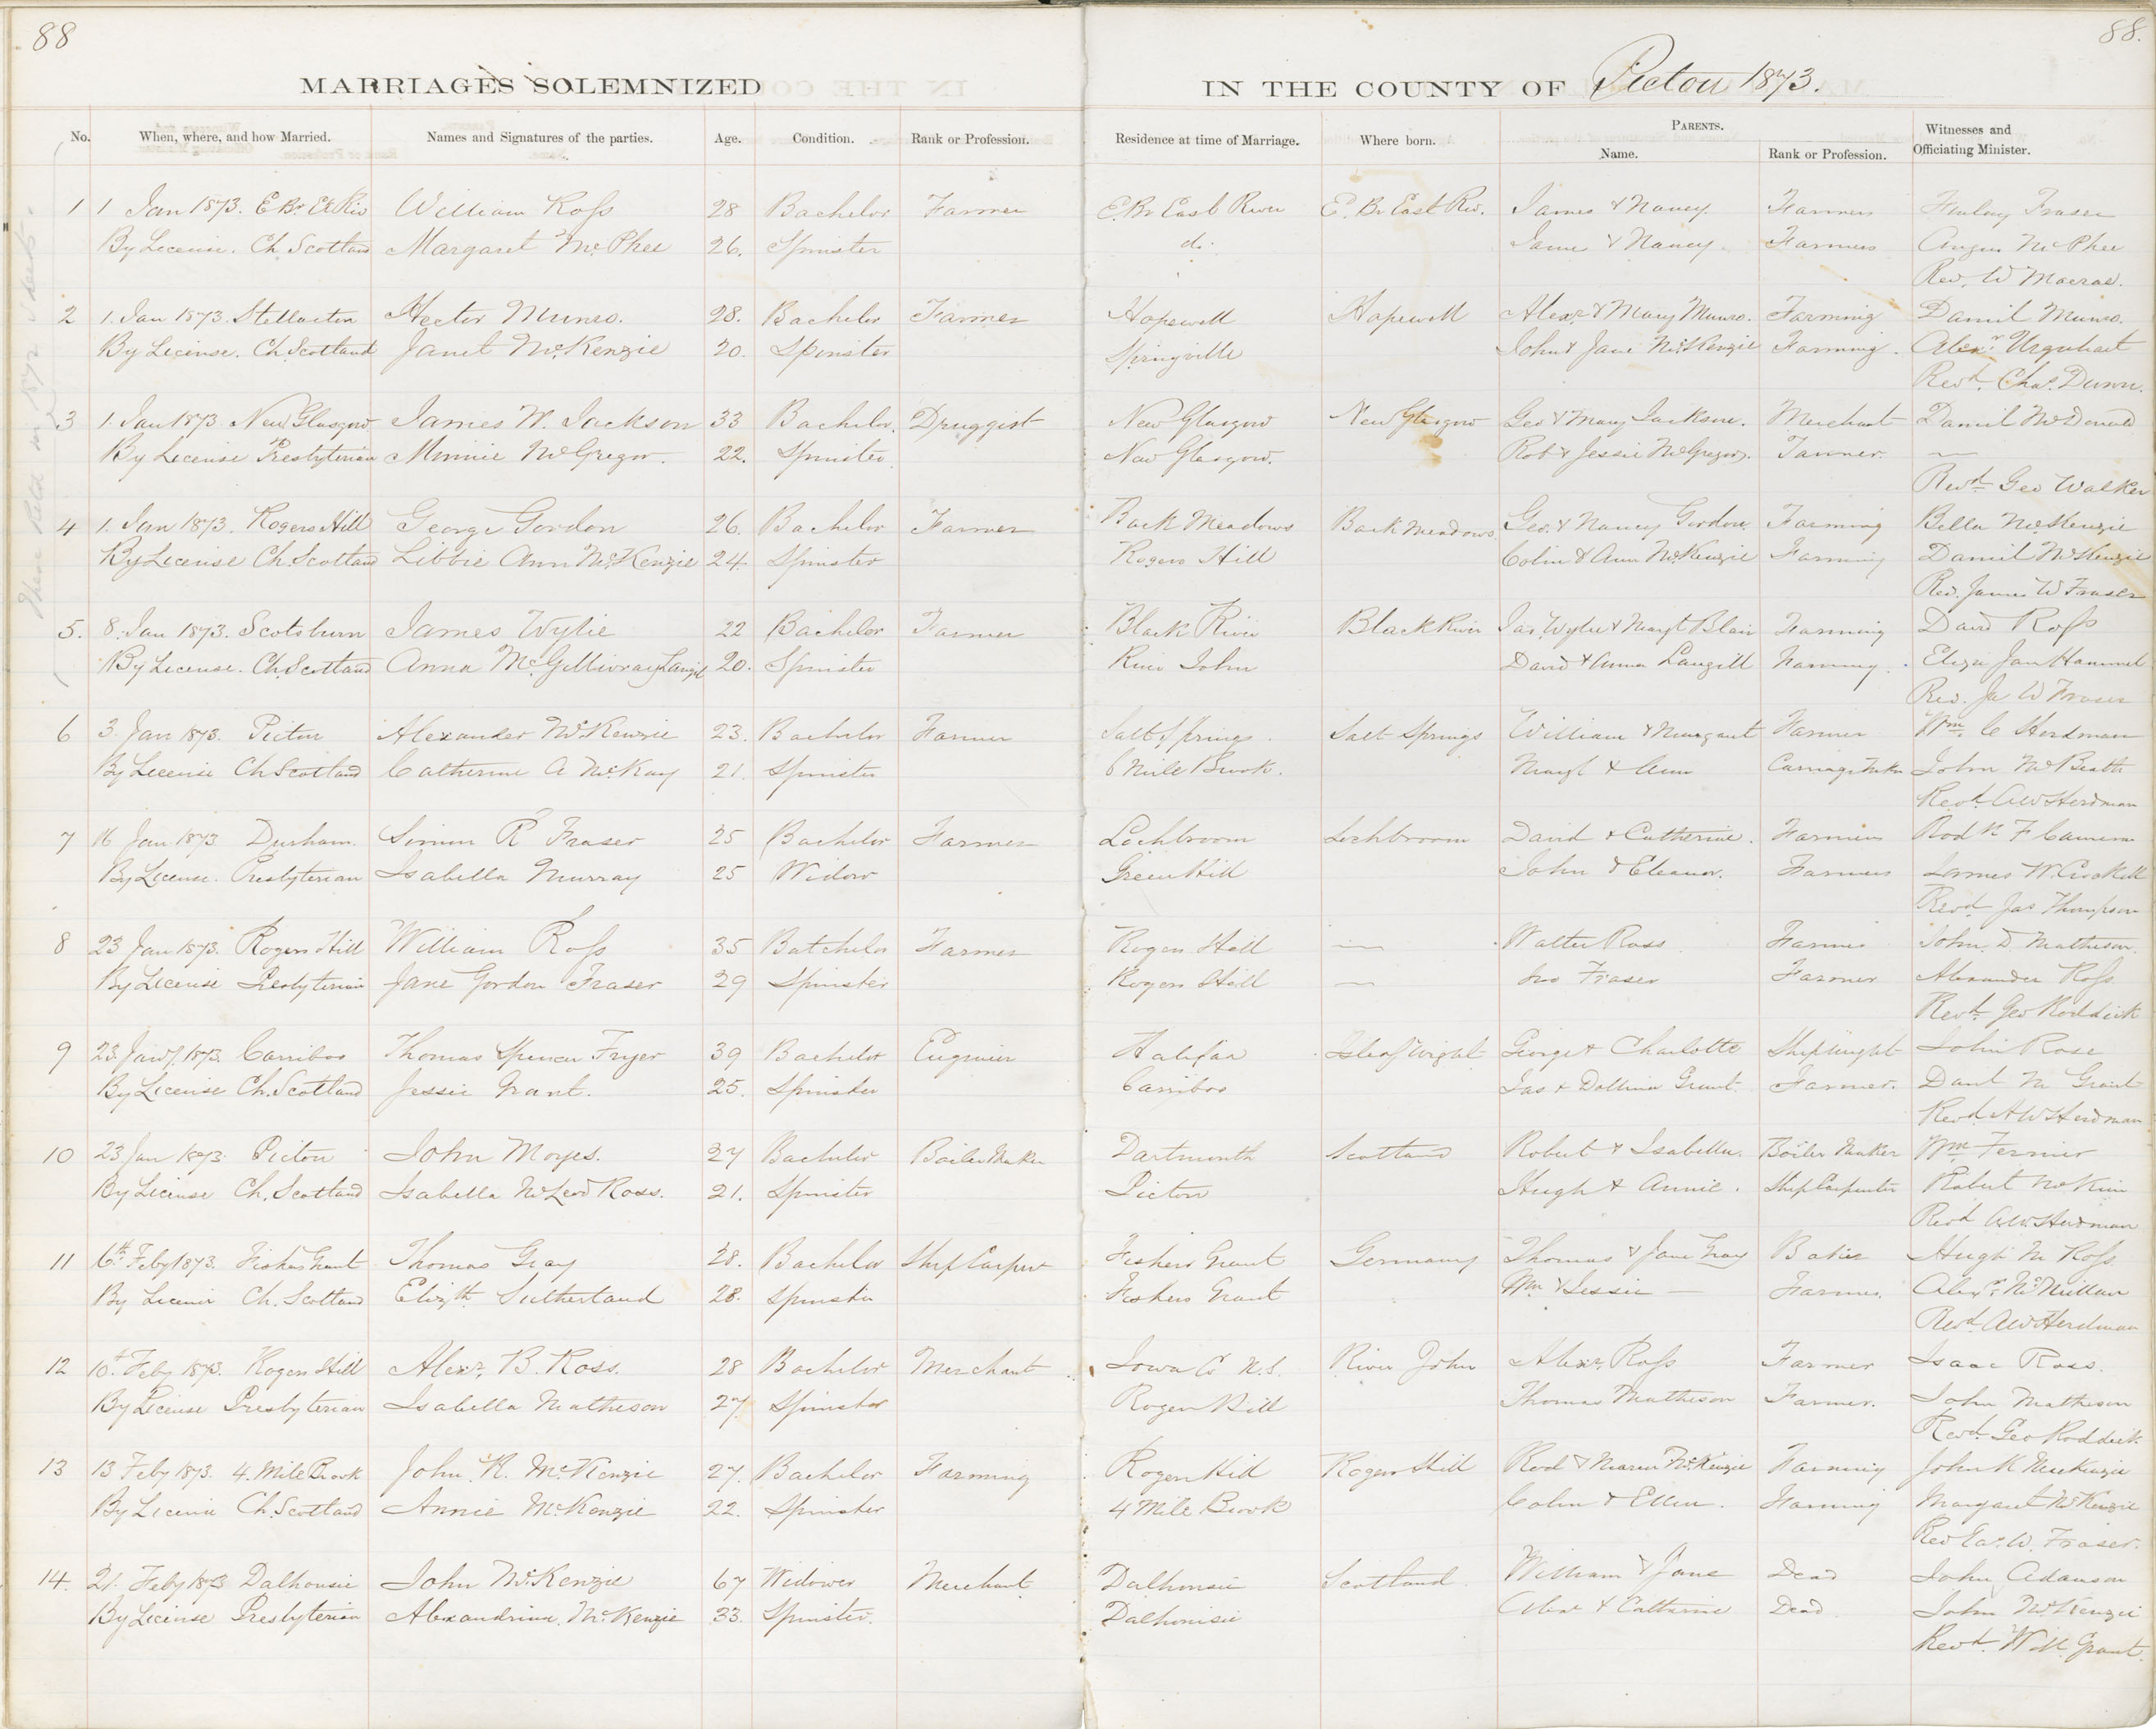 88
88.
MARRIAGES SOLEMNIZED
IN THE COUNTY OF Pictou 1873.
No. When, where, and how Married. Names and Signatures of the parties. Age. Condition. Rank or Profession. Residence at time of Marriage. Where born. PARENTS. Name. Rank or Profession. Witnesses and Officiating Minister.
1 1 Jan 1873. E Br Et Riv William Ross 28 Bachelor Farmer E. Br East River E. Br East Riv. James & Nancy. Farmers Finlay Fraser
By License. Ch. Scotland Margaret McPhee 26. Spinster do. James & Nancy. Farmers Angus McPhee
Rev. W Macrae.
2 1. Jan 1873. Stellarton Hector Munro. 28. Bachelor Farmer Hopewell Hopewell Alexr & Mary Munro. Farming Daniel Munro.
By License. Ch Scotland Janet McKenzie 20. Spinster Springville John & Jane McKenzie Farming. Alexr Urquhart
Revd. Chas. Dunn.
3 1. Jan 1873. New Glasgow James W. Jackson 33 Bachelor. Druggist New Glasgow New Glasgow Geo & Mary Jackson. Merchant Daniel McDonald
By License Presbyterian Minnie McGregor. 22. Spinster New Glasgow. Rob & Jessie McGregor. Tanner. —
Revd Geo Walker
4 1. Jan 1873. Rogers Hill George Gordon 26. Bachelor Farmer Back Meadows Back Meadows Geo. & Nancy Gordon Farming Bella McKenzie
By License Ch. Scotland Libbie Ann McKenzie 24 Spinster Rogers Hill Colin & Ann McKenzie Farming Daniel McKenzie
Rev. James W Fraser
5. 8. Jan 1873. Scotsburn James Wylie 22 Bachelor Farmer Black River Black River Jas Wylie & Margt Blair Farming David Ross
By License. Ch. Scotland Anna McGillivray Langil 20. Spinster River John David & Anna Langill Farming. Eliza Jan Hammel
Rev. Ja W Fraser
6 3. Jan 1873. Pictou Alexander McKenzie 23. Bachelor Farmer Salt Springs Salt Springs William & Margaret Farmer Wm. C Herdman
By License Ch Scotland Catherine A McKay 21. Spinster 6 Mile Brook. Margt & Ann Carriage Maker John McBeath
Revd. AW Herdman
7 16 Jan 1873 Durham. Simon R Fraser 25 Bachelor Farmer Lochbroom Lochbroom David & Catherine. Farmers Rodk F Cameron
By License. Presbyterian Isabella Murray 25 Widow Green Hill John & Eleanor. Farmers James W. Crockett
Revd Jas Thompson
8 23 Jan 1873. Rogers Hill William Ross 35 Batchelor Farmer Rogers Hill — Walter Ross Farmer John. D Matheson
By License Presbyterian Jane Gordon Fraser 29 Spinster Rogers Hill — Jno Fraser Farmer Alexander Ross
Revd. Geo Roddick
9 23. Jany. 1873. Carriboo Thomas Spencer Fryer 39 Bachelor Engineer Halifax Isle of Wight George & Charlotte Shipwright John Rose
By License Ch. Scotland Jessie Grant. 25. Spinster Carriboo Jas & Dollina Grant. Farmer. Danl M Grant
Revd AW Herdman
10 23 Jan 1873. Pictou John Moyes. 27 Bachelor Boiler Maker Dartmouth Scotland Robert & Isabella. Boiler Maker Wm Ferrier
By License Ch. Scotland Isabella McLeod Ross. 21. Spinster Pictou Hugh & Annie. Ship Carpenter Robert McKim
Revd AW Herdman
11 6th Feby 1873. Fishers Grant Thomas Gray 28. Bachelor Ship Carper Fishers Grant Germany Thomas & Jane Gray Baker Hugh M Ross
By License Ch. Scotland Elizth Sutherland 28. Spinster Fishers Grant Wm & Jessie — Farmer. Alexr. McMillan
Revd AW Herdman
12 10th Feby 1873. Rogers Hill Alexr. B. Ross. 28 Bachelor Merchant Iowa Co N.S. River John Alexr. Ross Farmer Isaac Ross.
By License Presbyterian Isabella Matheson 27 Spinster Rogers Hill Thomas Matheson Farmer. John Matheson
Revd. Geo Roddick
13 13 Feby 1873. 4. Mile Brook John. R. McKenzie 27. Bachelor Farming Rogers Hill Rogers Hill Rod & Maria McKenzie Farming John K MacKenzie
By License Ch. Scotland Annie McKenzie 22. Spinster 4 Mile Brook Colin & Ellen. Farming Margaret McKenzie
Rev Jas. W. Fraser.
14. 21. Feby 1873 Dalhousie John McKenzie 67 Widower Merchant Dalhousie Scotland. William & Jane Dead John Adamson
By License Presbyterian Alexandrina. McKenzie 33. Spinster. Dalhousie Alexr & Catherine Dead John McKenzie
Revd. W M Grant.